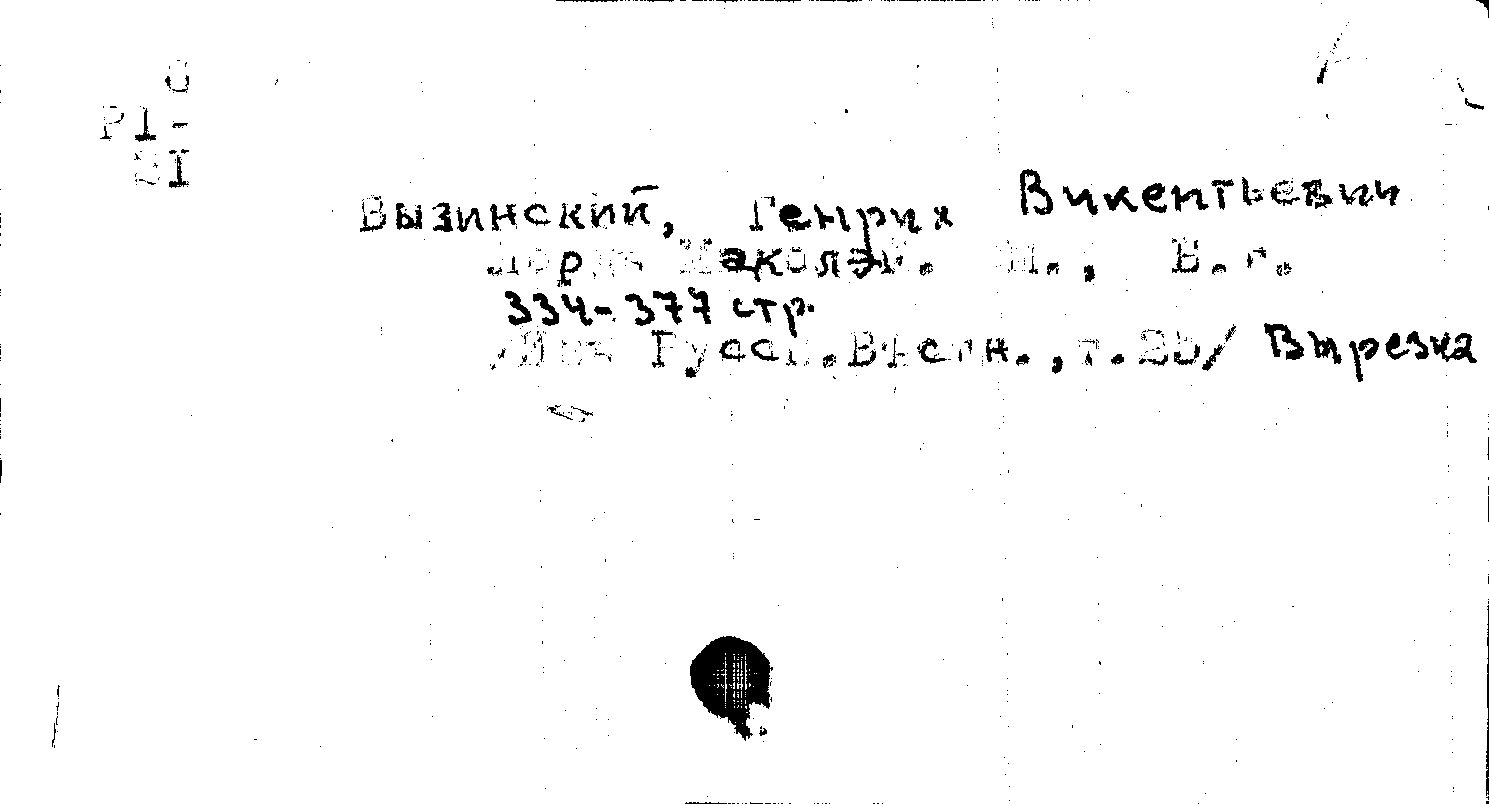 Р1-
Вызинский, Генрих Викентьевич
Лорд Маколэй. М., Б.г.
334-377 стр.
/Из: Русск.Вестн.,т.25/ Вырезка